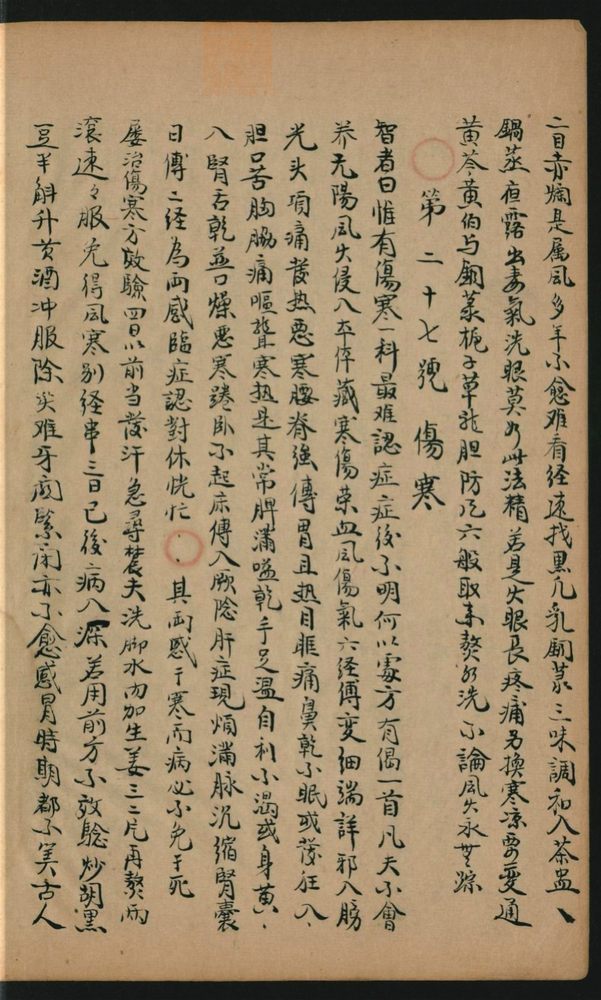 二目赤爛是属風多年不愈难看经速找黑几乳銅菉三味調和入茶盅
鍋蒸夜露出毒氣洗眼莫如此法精若是火眼長疼痛另換寒凉要变通
黄芩黄伯与銅菉栀子草龙胆防风六般取来熬水洗不論風火永無踪
第二十七號傷寒
智者曰惟有傷寒一科最难認症症後不明何以寡方有偈一首凡夫不會
养元陽風火侵入卒倅藏寒傷荣血風傷氣六经傅变细端詳邪入膀
光头項痛發热惡寒腰脊強傅胃且热目眶痛鼻乾不眠或發狂入
胆口苦胸脇痛嘔聋寒热是其常脾滿嗌乾手足温自利不渴或身黄
入腎舌乾並口燥惡寒踡卧不起床傅入厥陰肝症現煩滿脉沉缩腎囊
日傅二经為兩感臨症認對休恍忙 其兩感于寒而病必不免于死
屡治傷寒方效驗四日以前当發汗急尋農夫洗脚水内加生姜三二片再熬兩
滾速々服免得風寒别经串三日已後病入深若用前方不效驗炒胡黑
豆半斛升黄酒冲服除灾难牙関緊闭亦不愈感冒時期都不美古人